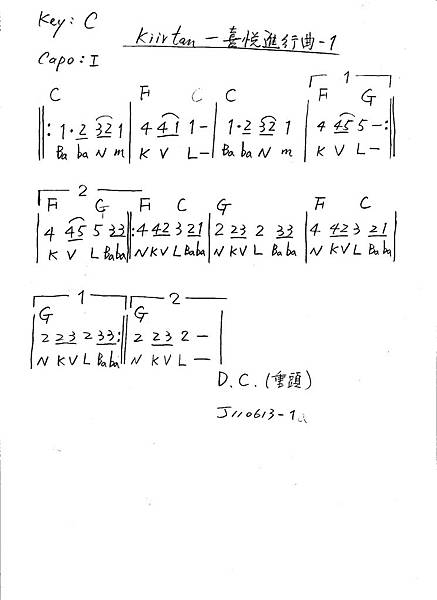 Key: C
Kiirtan - 喜悅進行曲-1
Capo: I
1
C F C C F G
||: 1·2 321 | 4 41 1- | 1·2 32 1 | 4 45 5 -:||
Ba ba N m K V L- Ba ba N m K V L-
2
F G F C G F C
4 45 5 33 ||: 4 42 3 21 | 2 23 2 33 | 4 423 21 |
K V L Baba N KV L Baba N KV L Baba N KV L Baba
1 2
G G
| 2 23 2 33 :|| 2 23 2 - |
N KV L Baba N KV L -
D.C. (重頭)
J110613-1